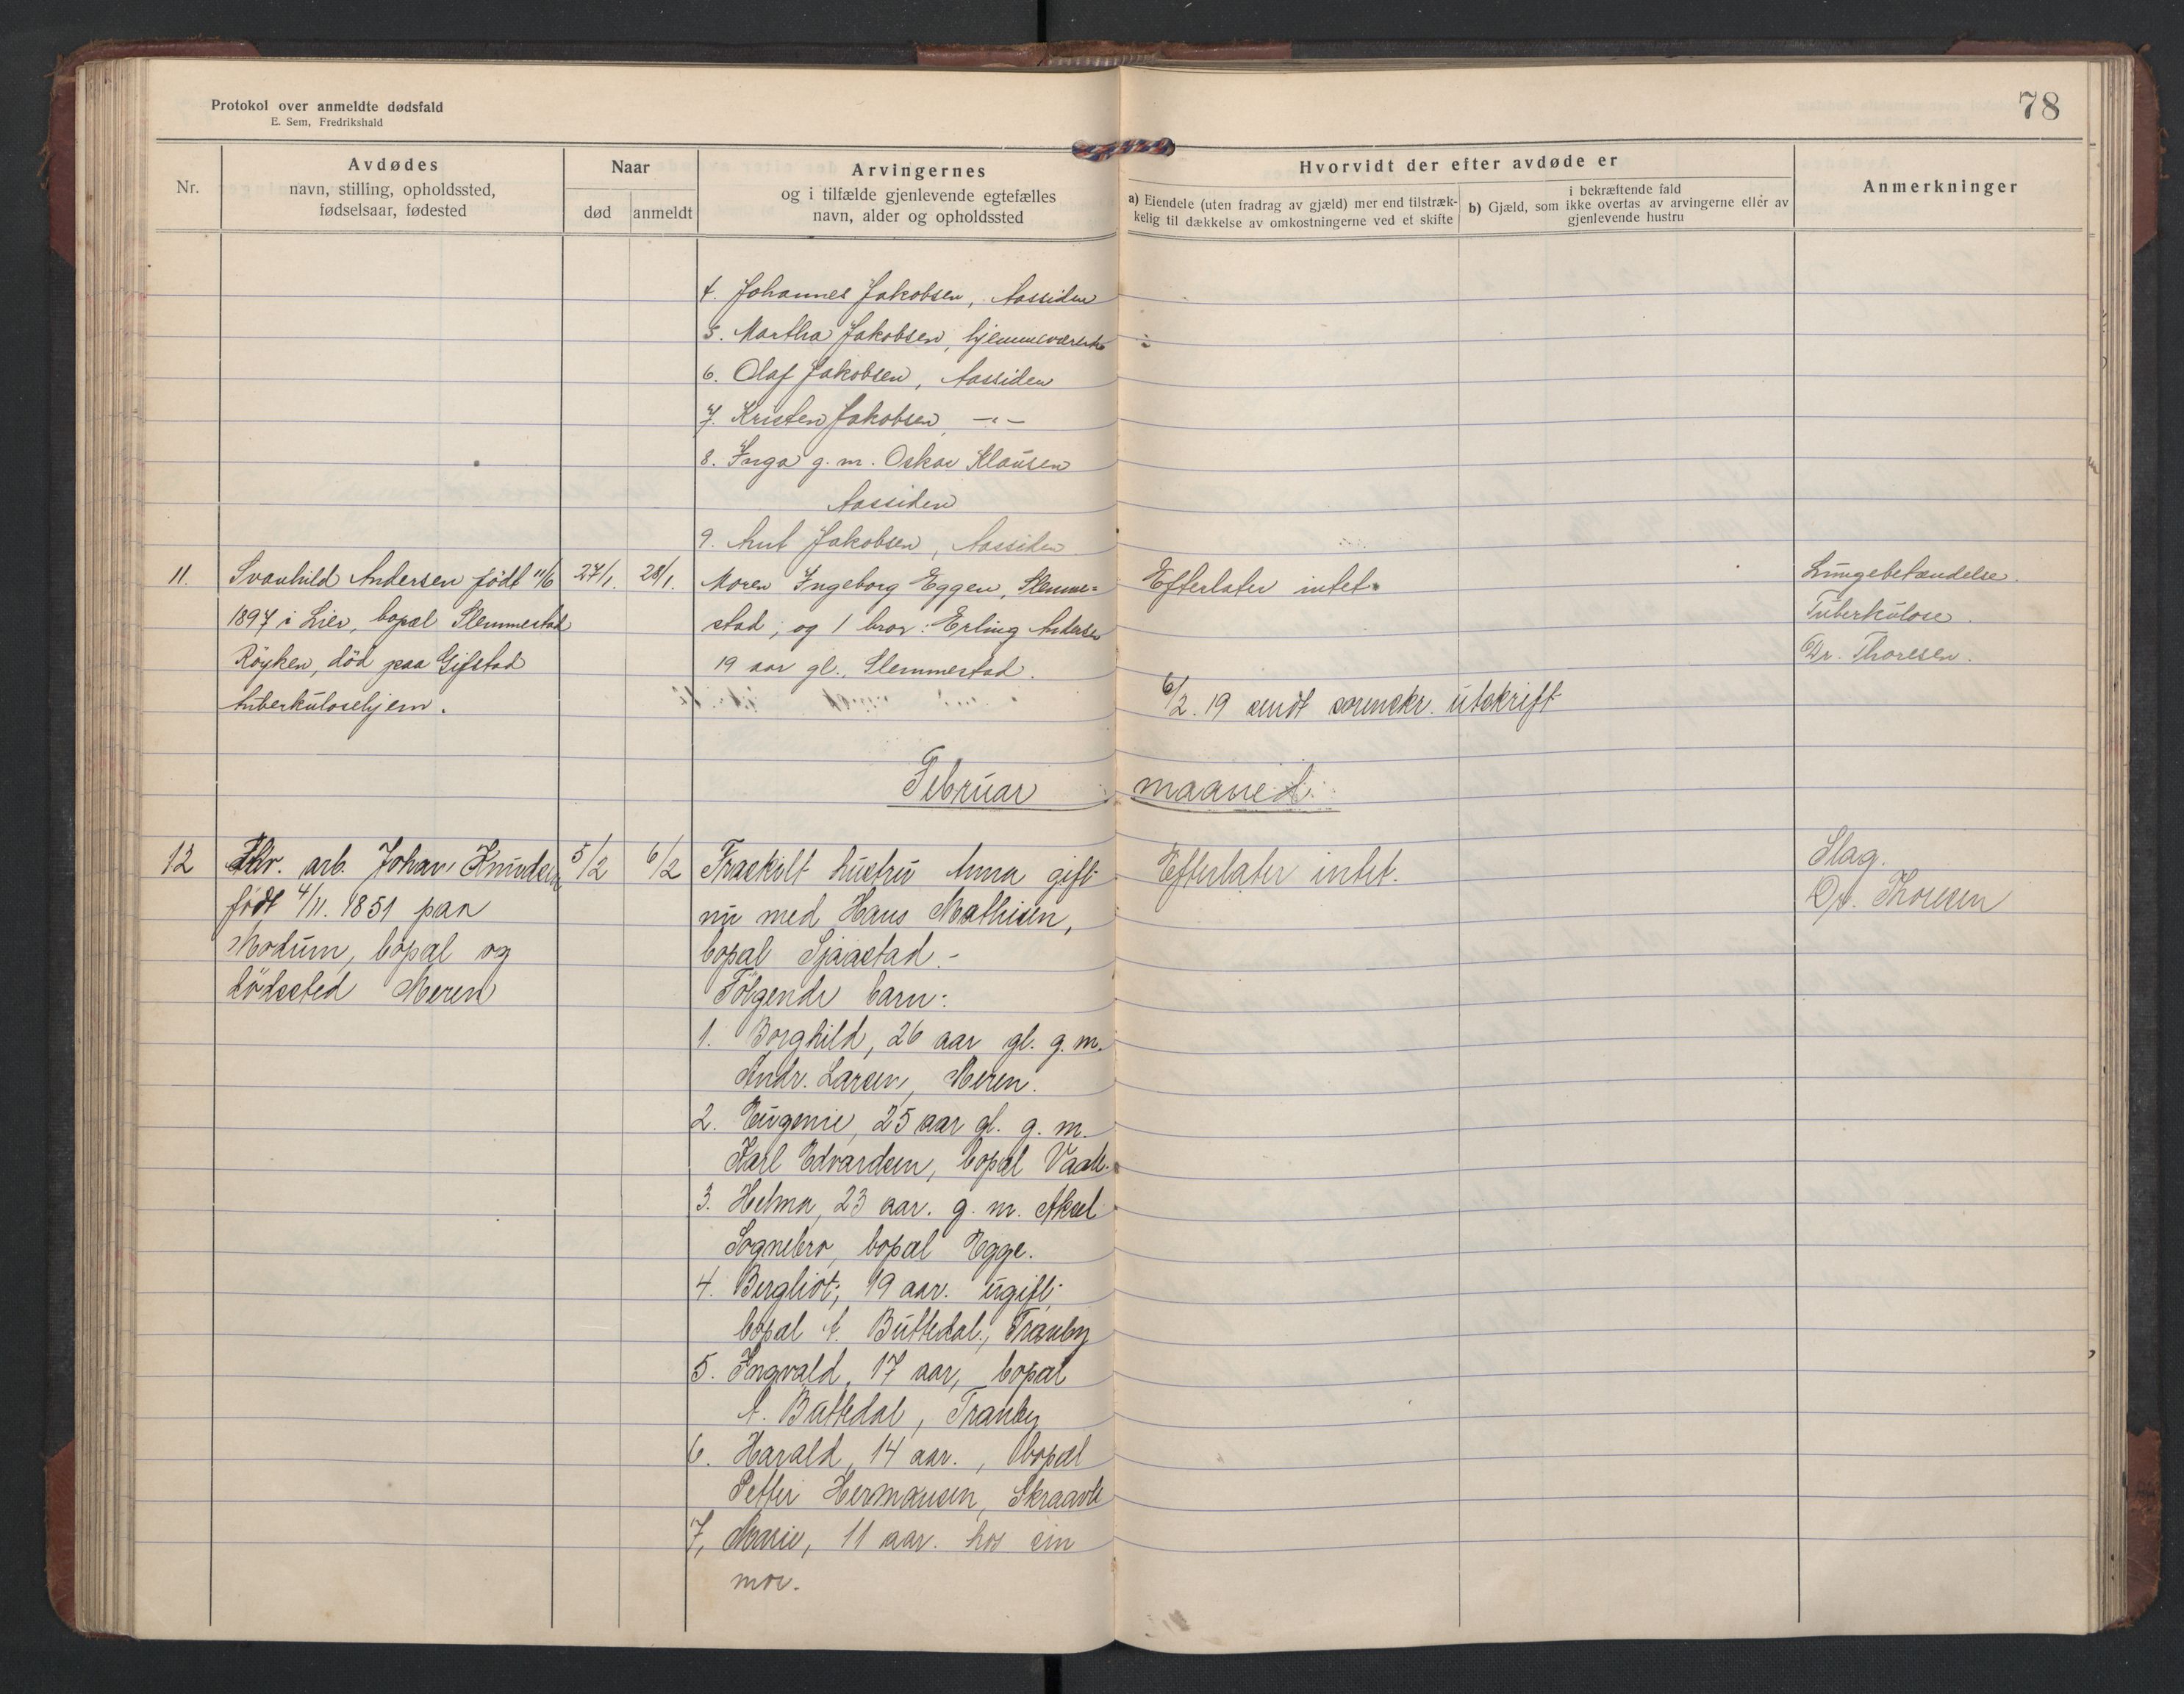 Protokol over anmeldte dødsfald
E. Sem, Fredrikshald
78
Nr.
Avdødes
navn, stilling, opholdssted,
fødselsaar, fødested
Naar
død
anmeldt
Arvingernes
og i tilfælde gjenlevende egtefælles
navn, alder og opholdssted
Hvorvidt der efter avdøde er
a) Eiendele (uten fradrag av gjæld) mer end tilstræk-
kelig til dækkelse av omkostningerne ved et skifte
i bekræftende fald
b) Gjæld, som ikke overtas av arvingerne eller av
gjenlevende hustru
Anmerkninger
4. Johannes Jakobsen, Aassiden
5. Martha Jakobsen, hjemmeværende
6. Olaf Jakobsen, Aassiden
7. Kristen Jakobsen, -"-
8. Inga g. m. Oskar Klausen
Aassiden
9. Ant Jakobsen, Aassiden
11.
Svanhild Andersen født 11/6
1897 i Lier, bopæl Slemmestad
Røyken, död paa Gifstad
tuberkulosehjem.
27/1.
28/1.
Moren Ingeborg Eggen, Slemme=
stad, og 1 bror: Erling Andersen
19 aar gl., Slemmestad.
Efterlater intet.
6/2. 19 sendt sorenskr. utskrift
Lungebetændelse.
Tuberkulose.
Dr. Thoresen.
Februar maaned.
12
arb. Johan Knudsen
født 4/11. 1851 paa
Modum, bopæl og
dödssted Meren
5/2
6/2
Fraskilt hustru Anna gift
nu med Hans Mathisen,
bopæl Sjaastad.-
Følgende barn:
1. Borghild, 26 aar gl. g. m.
Andr. Larsen, Meren.
2. Eugenie, 25 aar gl. g. m.
Karl Edvardsen, bopæl
3. Helma, 23 aar. g. m. Aksel
Sognebro, bopæl Egge.
4. Bergliot, 19 aar. ugift,
bopæl A. Buttedal, Tranby
5. Ingvald, 17 aar, bopæl
A. Buttedal, Tranby
6. Harald, 14 aar., bopæl
Petter Hermansen,
7, Marie, 11 aar. hos sin
mor.
Efterlater intet.
Slag.
Dr. Thoresen